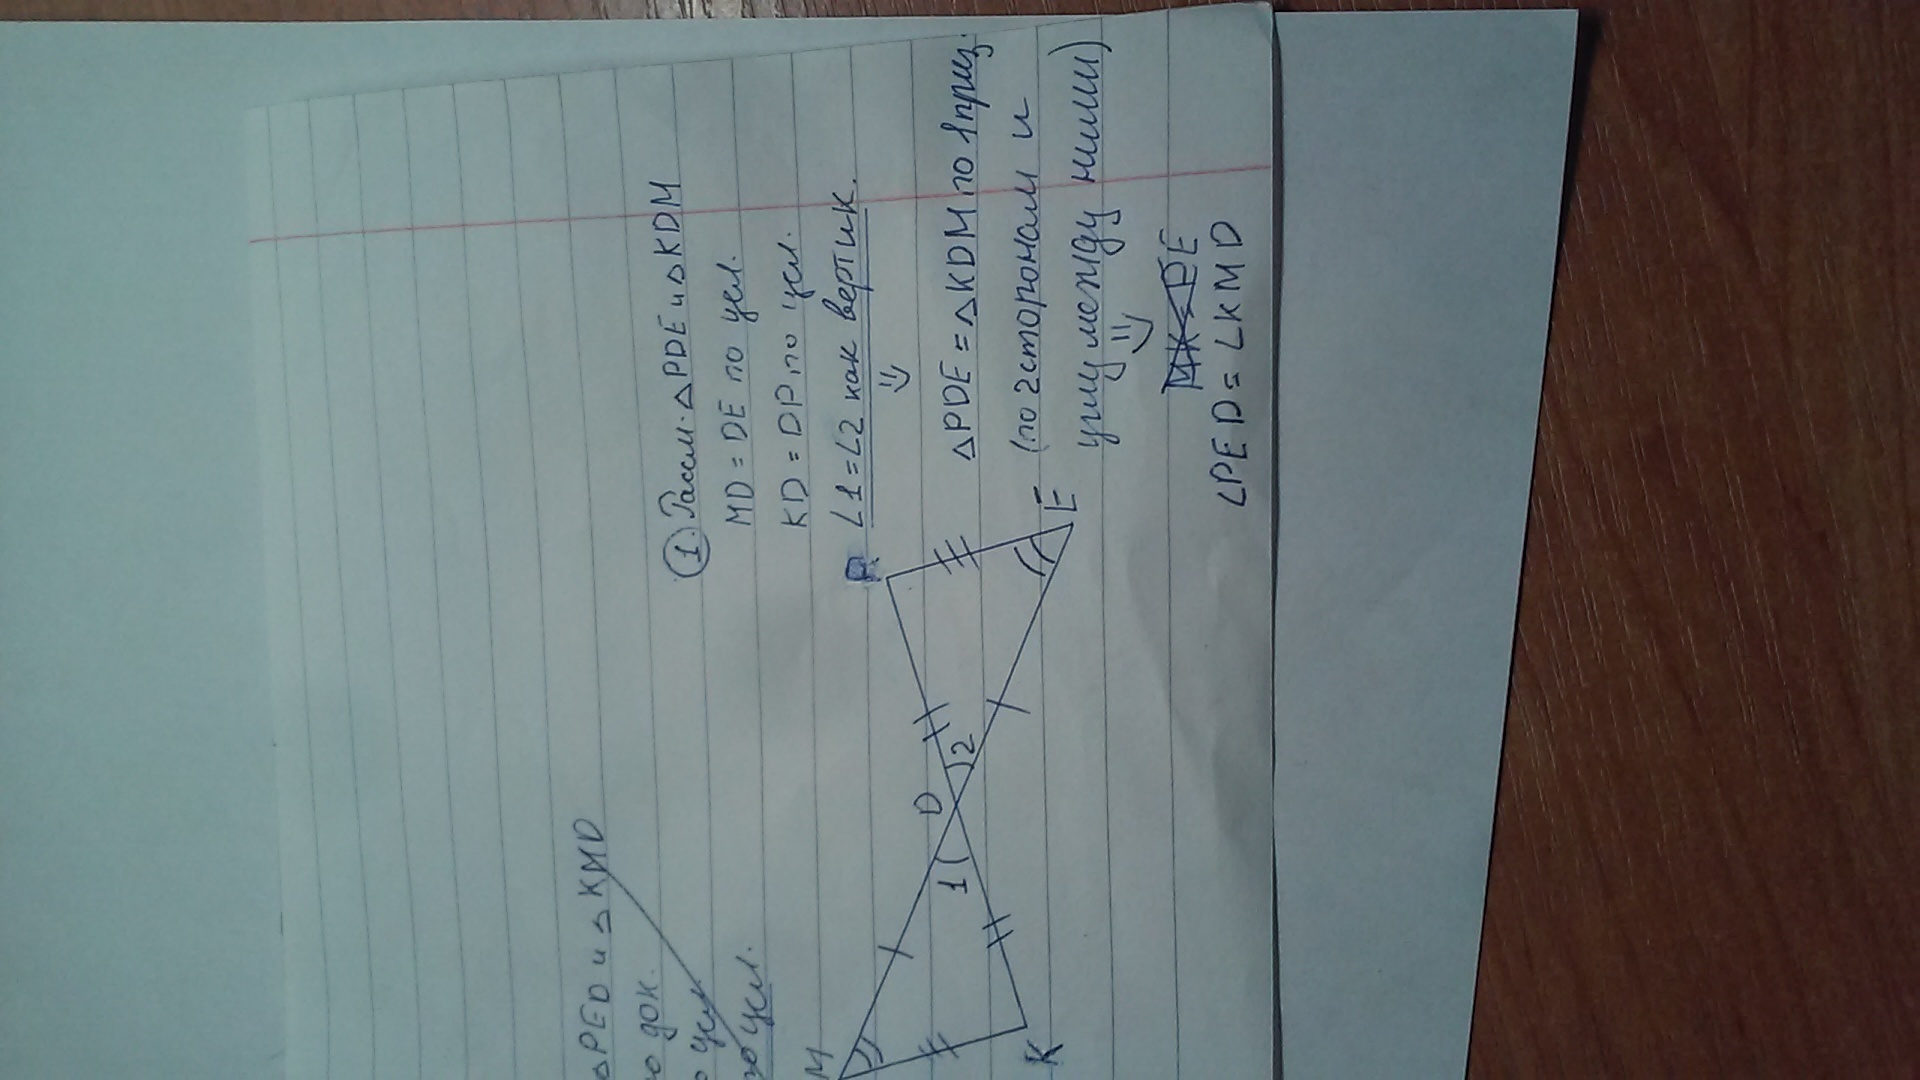 △PED и △KMD
о док.
о усл
по усл.
① Рассм. △PDE и △KDM
MD = DE по усл.
KD = DP по усл.
∠1 = ∠2 как вертик.
⇓
△PDE = △KDM по 1 приз.
(по 2 сторонам и
углу между ними)
⇓
MK = PE
∠PED = ∠KMD
M
K
1
D
2
P
E